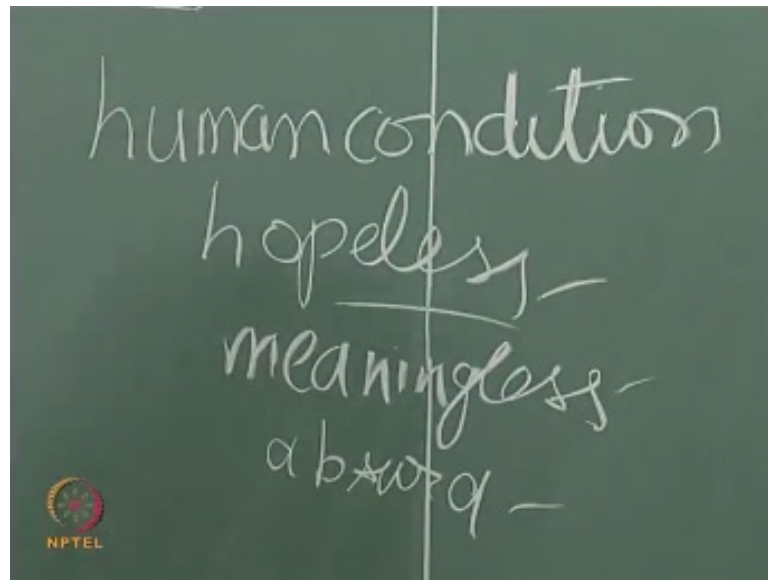 human condition
hopeless -
meaningless -
absurd -
NPTEL